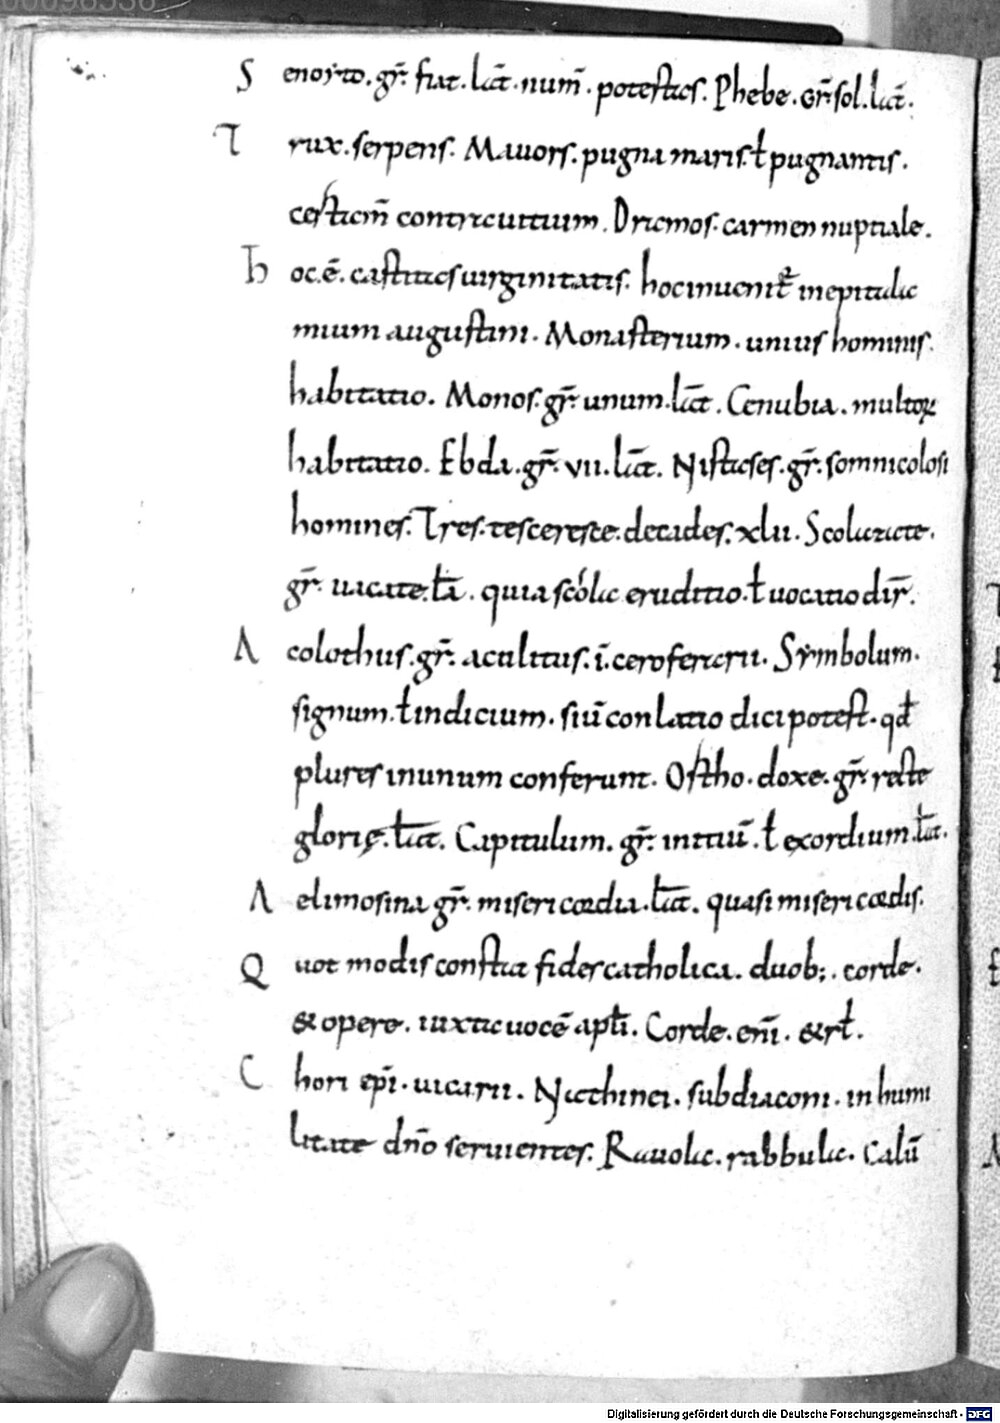 S enoyto. gr̄. fiat. lat̄. num̄. potestas. Phebe. gr̄. sol. lat̄.
T rux. serpens. Mauors. pugna maris. ł pugnantis.
cestiam̄ contrauitium. Dramos. carmen nuptiale.
h oc. ē. castitas uirginitatis. hoc inuenit̄ in epitala
mium augustini. Monasterium. unius hominis.
habitatio. Monos. gr̄. unum. lat̄. Cenubia. multoꝝ
habitatio. Ebda. gr̄. vii. lat̄. Nistases. gr̄. somnicolosi
homines. Tres. tescereste. decades. xlii. Scolazate.
gr̄. uacate. lā. quia scóla eruditio. ł uocatio dir̄.
A colothus. gr̄. acolitus. ī. ceroferarii. Sẏmbolum.
signum. ł indicium. siū conlatio dici potest. qđ
plures inunum conferunt. Ostho. doxe. gr̄. recte
glorię. lat̄. Capitulum. gr̄. initiū. ł exordium. lat̄.
A elimosina gr̄. misericordia. lat̄. quasi misericordis.
Q uot modis constat fides catholica. duob;. corde.
& opere. iuxta uocē apłi. Corde. enī. & rł.
C hori epī. uicarii. Nathinei. subdiaconi. in humi
litate dn̄o seruientes. Rauola. rabbula. Calū
Digitalisierung gefördert durch die Deutsche Forschungsgemeinschaft - DFG